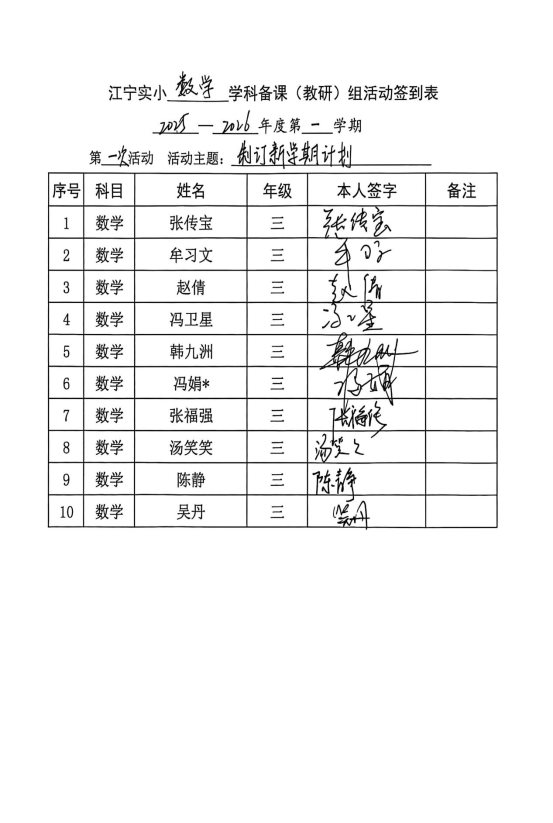 江宁实小 数学 学科备课（教研）组活动签到表
2025 — 2026 年度第 一 学期
第 一次 活动 活动主题：制订新学期计划
序号 科目 姓名 年级 本人签字 备注
1 数学 张传宝 三 张传宝
2 数学 牟习文 三
3 数学 赵倩 三 赵倩
4 数学 冯卫星 三 冯卫星
5 数学 韩九洲 三 韩九洲
6 数学 冯娟* 三 冯娟
7 数学 张福强 三 张福强
8 数学 汤笑笑 三 汤笑笑
9 数学 陈静 三 陈静
10 数学 吴丹 三 吴丹